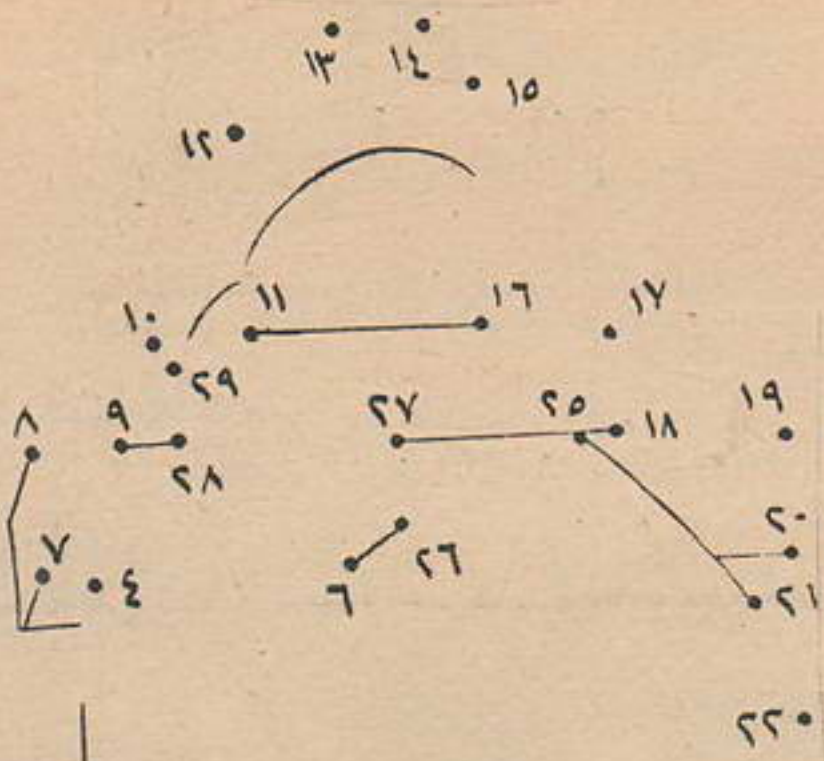 ١٣
١٤
١٥
١٢
١٠
١١
١٦
١٧
٢٩
٨
٩
٢٧
٢٥
١٨
١٩
٢٨
٢٠
٧
٤
٦
٢٦
٢١
٢٢